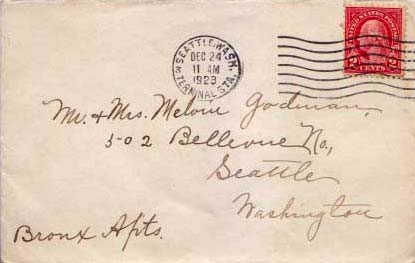 SEATTLE, WASH.
DEC 24
11 AM
1923
TERMINAL STA.
UNITED STATES POSTAGE
2 CENTS 2
Mr. & Mrs. Melvin Godman,
502 Bellevue No,
Seattle
Washington
Bronx Apts.